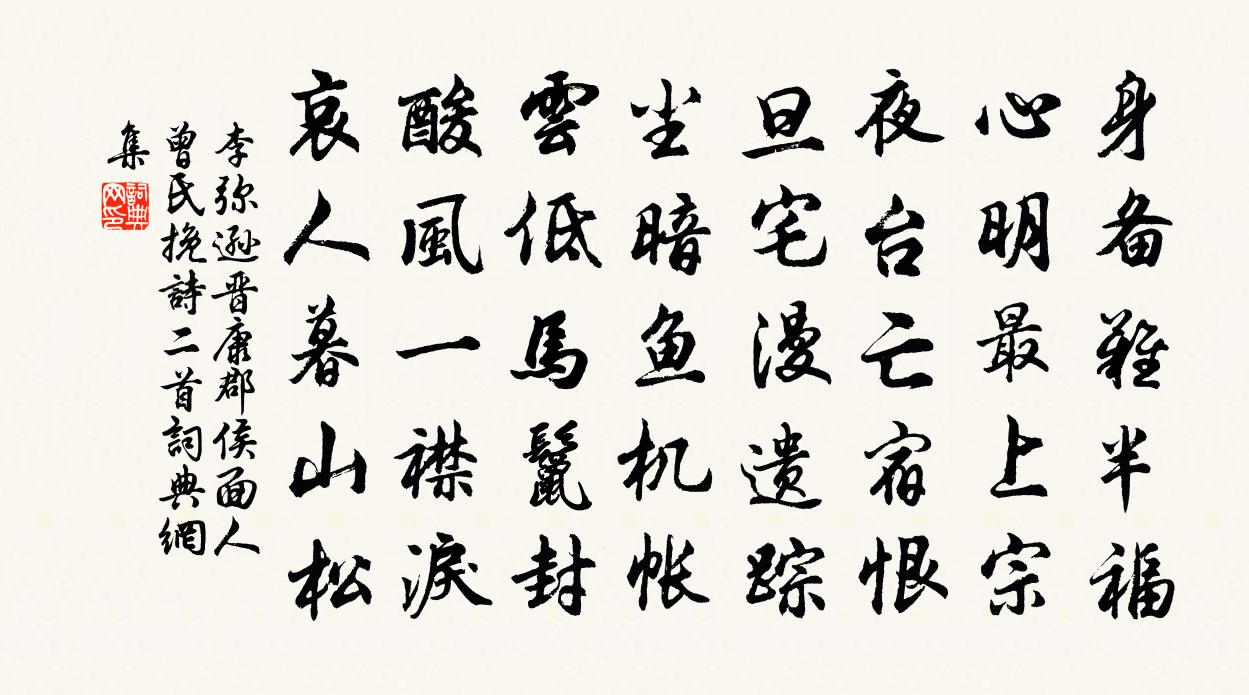 身备難半福
心明最上宗
夜台亡宿恨
旦宅漫遗踪
尘暗鱼机帐
雲低馬鬣封
酸風一襟淚
哀人暮山松
李弥逊晋康郡侯面人
曾氏挽詩二首詞典網
集
詞典网印